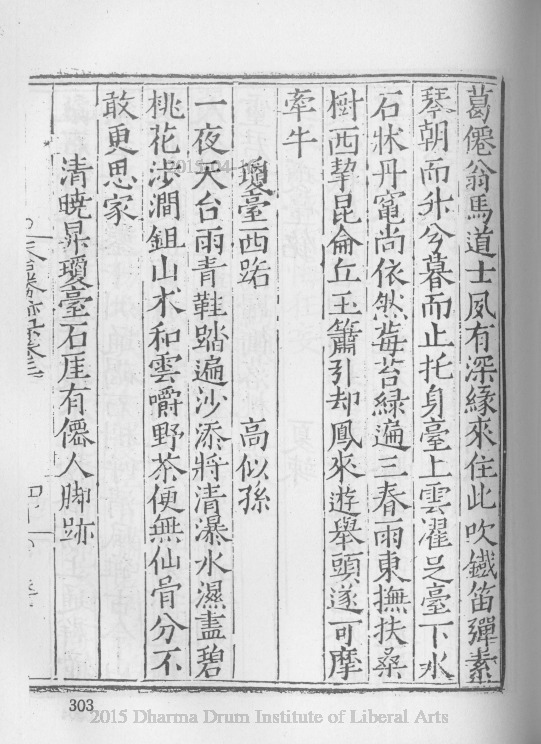 葛僊翁馬道士夙有深緣來住此吹鐵笛彈素
琴朝而升兮暮而止托身臺上雲濯足臺下水
石牀丹竈尚依然莓苔綠遍三春雨東撫扶桑
樹西挈昆侖丘玉簫引却鳳來遊舉頭遂可摩
牽牛
瓊臺西路 高似孫
一夜天台雨青鞋踏遍沙添將清瀑水濕盡碧
桃花涉澗鉏山朮和雲嚼野茶便無仙骨分不
敢更思家
清曉昇瓊臺石厓有僊人脚跡
303
2015 Dharma Drum Institute of Liberal Arts